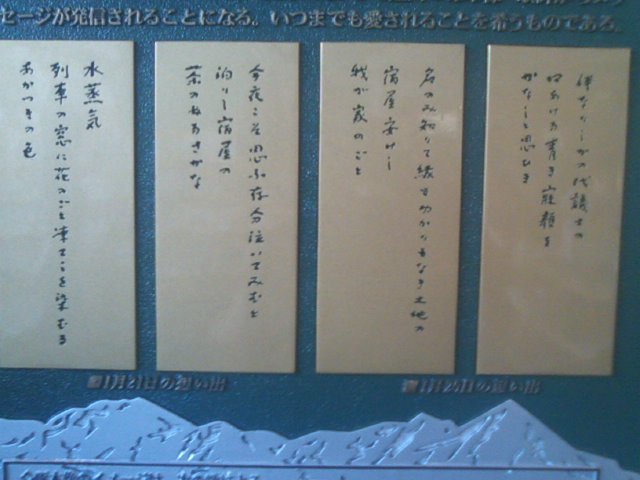 セージが発信されることになる。いつまでも愛されることを希うものである。
伴なりしかの代議士の
口あける青き寐顔を
かなしと思ひき
名のみ知りて縁もゆかりもなき土地の
宿屋安けし
我が家のごと
今夜こそ思ふ存分泣いてみむと
泊りし宿屋の
茶のぬるさかな
水蒸気
列車の窓に花のごと凍てしを染むる
あかつきの色
■1月20日の想い出
■1月21日の想い出